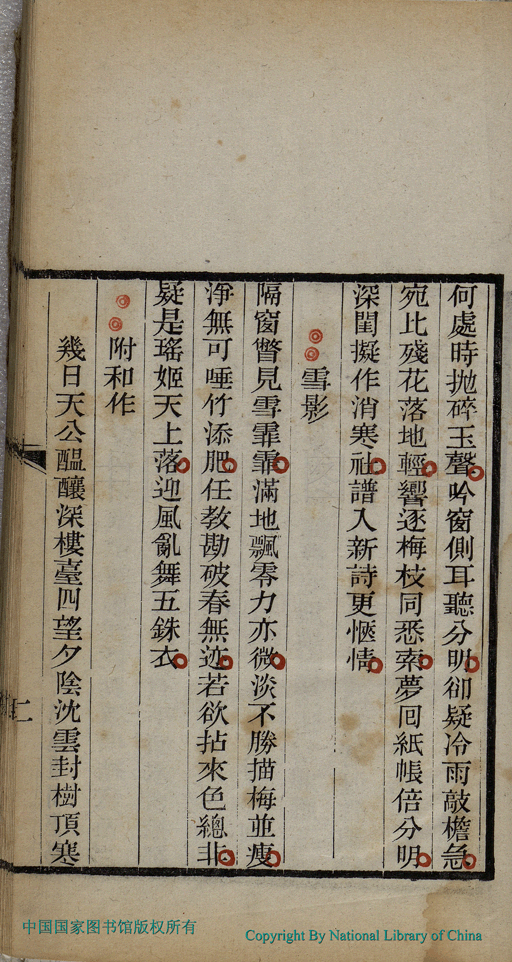 何處時拋碎玉聲吟窗側耳聽分明卻疑冷雨敲檐急
宛比殘花落地輕響逐梅枝同悉索夢回紙帳倍分明
深閨擬作消寒社譜入新詩更愜情
雪影
隔窗瞥見雪霏霏滿地飄零力亦微淡不勝描梅並瘦
淨無可唾竹添肥任教勘破春無迹若欲拈來色總非
疑是瑤姬天上落迎風亂舞五銖衣
附和作
幾日天公醞釀深樓臺四望夕陰沈雲封樹頂寒
二
中国国家图书馆版权所有
Copyright By National Library of China